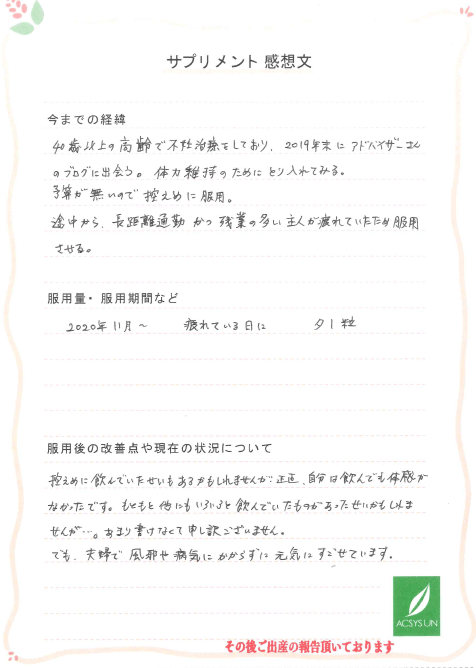 サプリメント 感想文
今までの経緯
40歳以上の高齢で不妊治療をしており、2019年末に アドバイザーさん
のブログに出会う。体力維持のためにとり入れてみる。
予算が無いので控えめに服用。
途中から、長距離通勤 かつ 残業の多い主人が疲れていたため服用
させる。
服用量・服用期間など
2020年11月～ 疲れている日に 夕1粒
服用後の改善点や現在の状況について
控えめに飲んでいたせいもあるかもしれませんが 正直、自分は飲んでも体感が
なかったです。もともと他にもいろいろと飲んでいたものがあったせいかもしれま
せんが…。あまり書けなくて申し訳ございません。
でも、夫婦で 風邪や病気にかからずに 元気にすごせています。
ACSYSUN
その後ご出産の報告頂いております